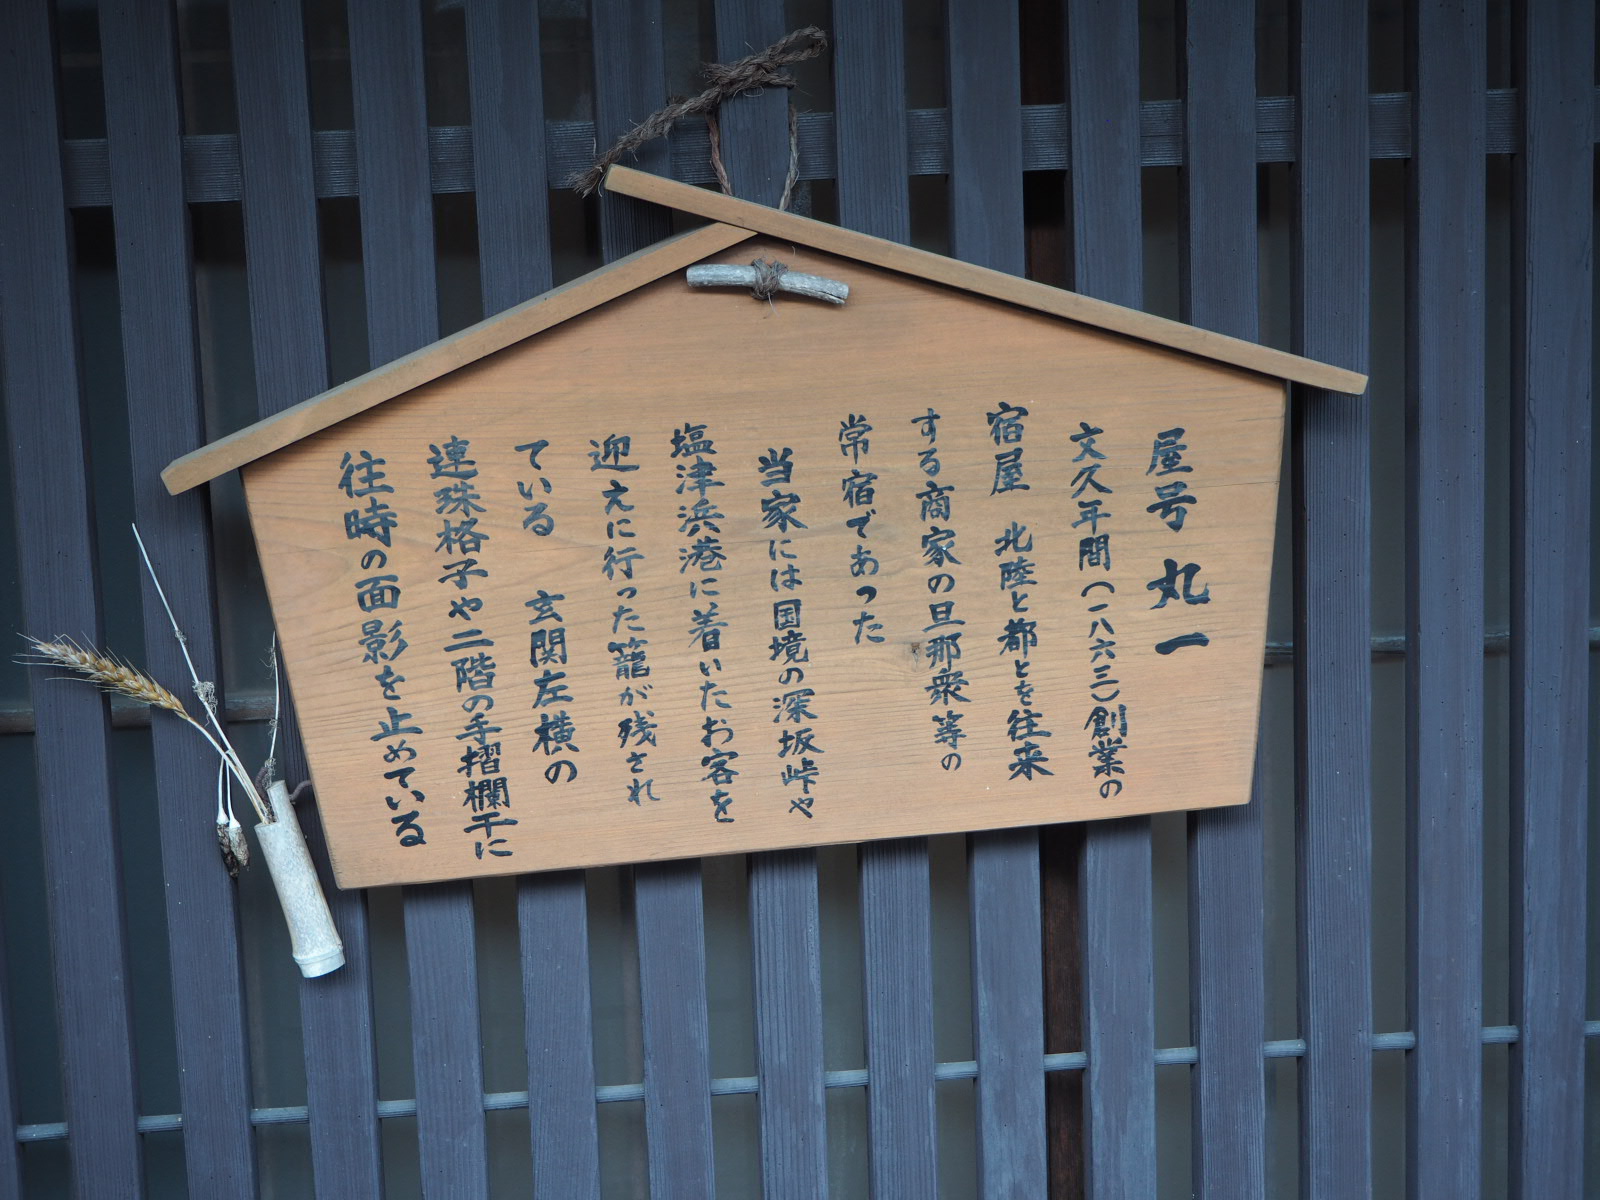 屋号 丸一
文久年間(一八六三)創業の
宿屋 北陸と都とを往来
する商家の旦那衆等の
常宿であった
当家には国境の深坂峠や
塩津浜港に着いたお客を
迎えに行った籠が残され
ている 玄関左横の
連珠格子や二階の手摺欄干に
往時の面影を止めている